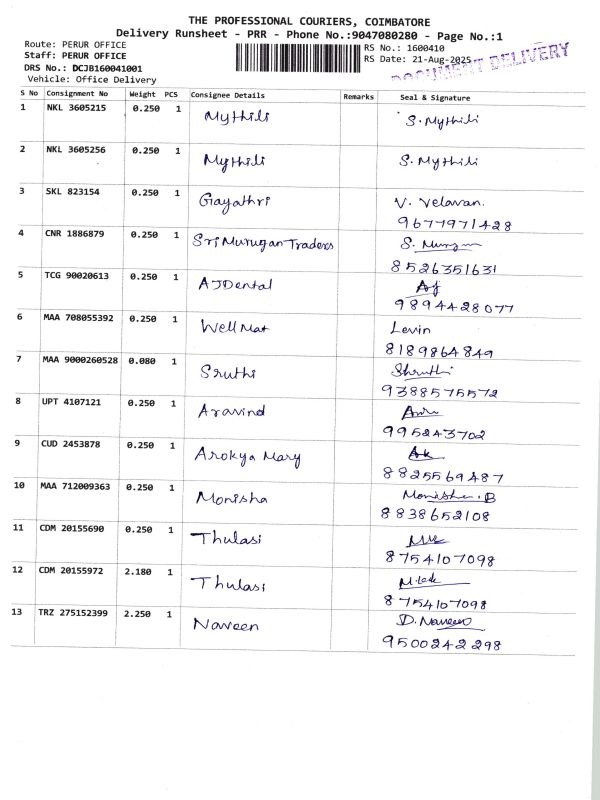 THE PROFESSIONAL COURIERS, COIMBATORE
Delivery Runsheet - PRR - Phone No.:9047080280 - Page No.:1
Route: PERUR OFFICE
Staff: PERUR OFFICE
DRS No.: DCJB160041001
Vehicle: Office Delivery
RS No.: 1600410
RS Date: 21-Aug-2025
DOCUMENT DELIVERY
S No Consignment No Weight PCS Consignee Details Remarks Seal & Signature
1 NKL 3605215 0.250 1 Mythili S. Mythili
2 NKL 3605256 0.250 1 Mythili S. Mythili
3 SKL 823154 0.250 1 Gayathri V. Velavan.
9677971428
4 CNR 1886879 0.250 1 Sri Murugan Traders S.
8526351631
5 TCG 90020613 0.250 1 AJ Dental AJ
9894428077
6 MAA 708055392 0.250 1 Well Mat Levin
8189864849
7 MAA 9000260528 0.080 1 Sruthi Shruthi
9388575572
8 UPT 4107121 0.250 1 Aravind
995243702
9 CUD 2453878 0.250 1 Arokya Mary AK
8825569487
10 MAA 712009363 0.250 1 Monisha Monisha.B
8838652108
11 CDM 20155690 0.250 1 Thulasi
8754107098
12 CDM 20155972 2.180 1 Thulasi
8754107098
13 TRZ 275152399 2.250 1 Naveen D. Naveen
9500242298